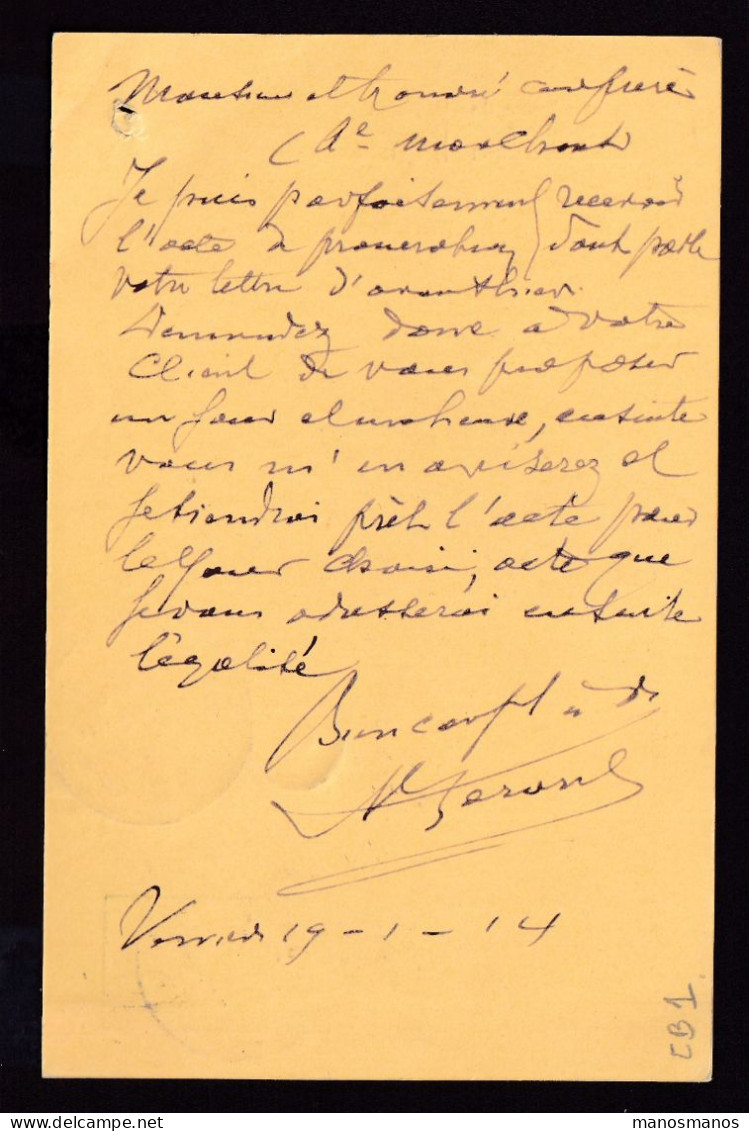 Monsieur et honoré confrère
(Ae Marchant
Je puis parfaitement recevoir
l'acte de procuration dont parle
votre lettre d'avant hier
Demandez donc à votre
Client de vous proposer
un jour et une heure, ensuite
vous m'en aviserez et
je tiendrai prêt l'acte pour
le jour choisi, acte que
je vous adresserai ensuite
légalisé
Bien conft à
19-1-14
CB1
manosmanos.com